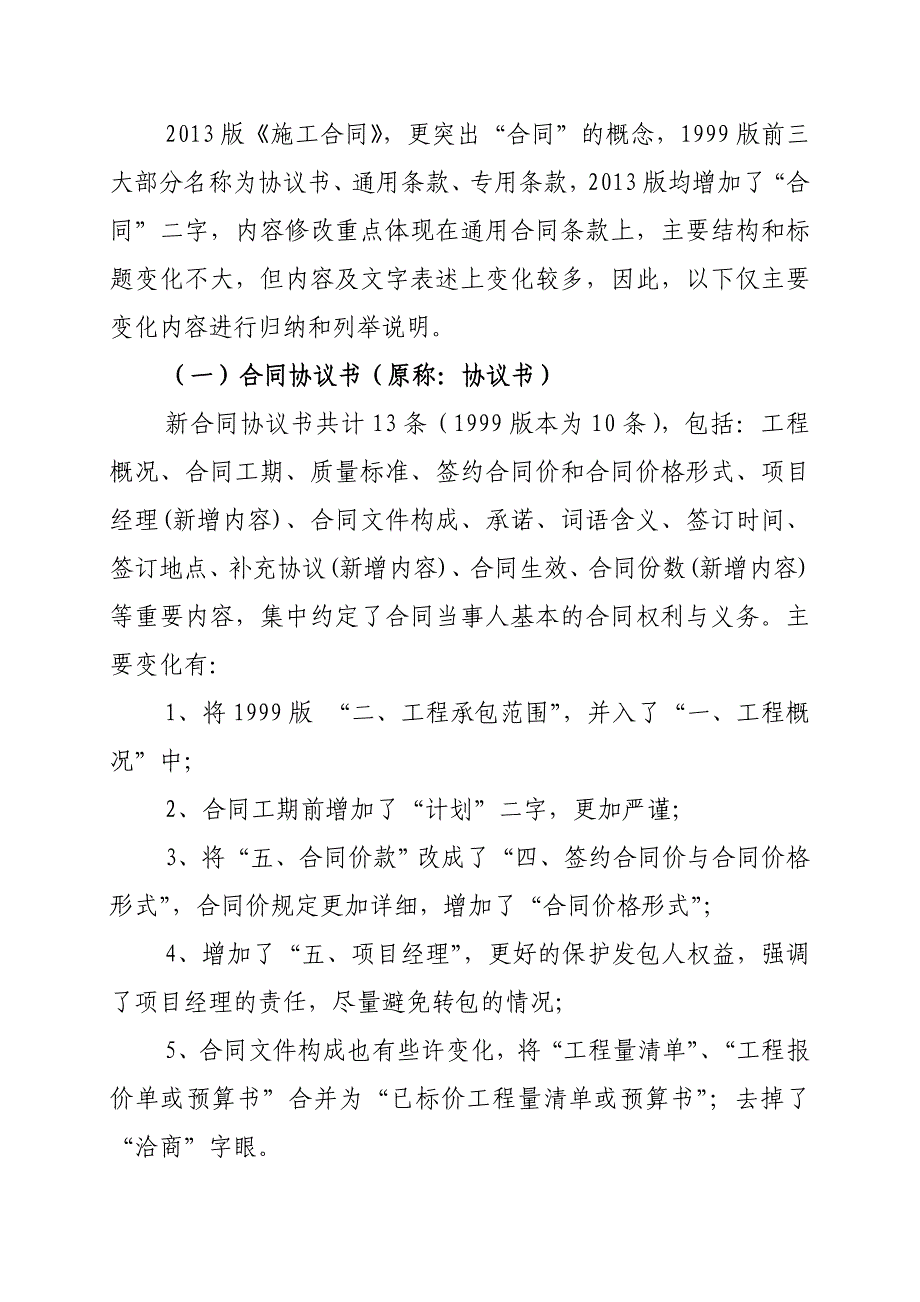 2013 版《施工合同》，更突出“合同”的概念，1999 版前三
大部分名称为协议书、通用条款、专用条款，2013 版均增加了“合
同”二字，内容修改重点体现在通用合同条款上，主要结构和标
题变化不大，但内容及文字表述上变化较多，因此，以下仅主要
变化内容进行归纳和列举说明。
（一）合同协议书（原称：协议书）
新合同协议书共计 13 条（1999 版本为 10 条），包括：工程
概况、合同工期、质量标准、签约合同价和合同价格形式、项目
经理(新增内容)、合同文件构成、承诺、词语含义、签订时间、
签订地点、补充协议(新增内容)、合同生效、合同份数(新增内容)
等重要内容，集中约定了合同当事人基本的合同权利与义务。主
要变化有：
1、将 1999 版 “二、工程承包范围”，并入了“一、工程概
况”中；
2、合同工期前增加了“计划”二字，更加严谨；
3、将“五、合同价款”改成了“四、签约合同价与合同价格
形式”，合同价规定更加详细，增加了“合同价格形式”；
4、增加了“五、项目经理”，更好的保护发包人权益，强调
了项目经理的责任，尽量避免转包的情况；
5、合同文件构成也有些许变化，将“工程量清单”、“工程报
价单或预算书”合并为“已标价工程量清单或预算书”；去掉了
“洽商”字眼。